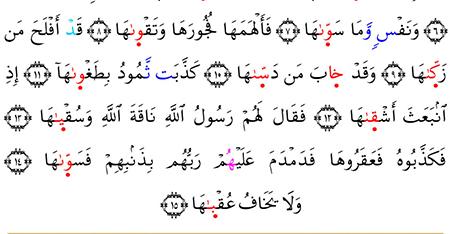 ﴿٦﴾ وَنَفْسٍ وَّمَا سَوّٜىٰهَا ﴿٧﴾ فَأَلْهَمَهَا فُجُورَهَا وَتَقْوٜىٰهَا ﴿٨﴾ قَدْ أَفْلَحَ مَن
زَكّٜىٰهَا ﴿٩﴾ وَقَدْ خَابَ مَن دَسّٜىٰهَا ﴿١٠﴾ كَذَّبَت ثَّمُودُ بِطَغْوٜىٰهَآ ﴿١١﴾ إِذِ
ٱنۢبَعَثَ أَشْقٜىٰهَا ﴿١٢﴾ فَقَالَ لَهُمْ رَسُولُ ٱللَّهِ نَاقَةَ ٱللَّهِ وَسُقْيٜـٰهَا ﴿١٣﴾
فَكَذَّبُوهُ فَعَقَرُوهَا فَدَمْدَمَ عَلَيْهُمْ رَبُّهُم بِذَنۢبِهِمْ فَسَوّٜىٰهَا ﴿١٤﴾
وَلَا يَخَافُ عُقْبٜـٰهَا ﴿١٥﴾